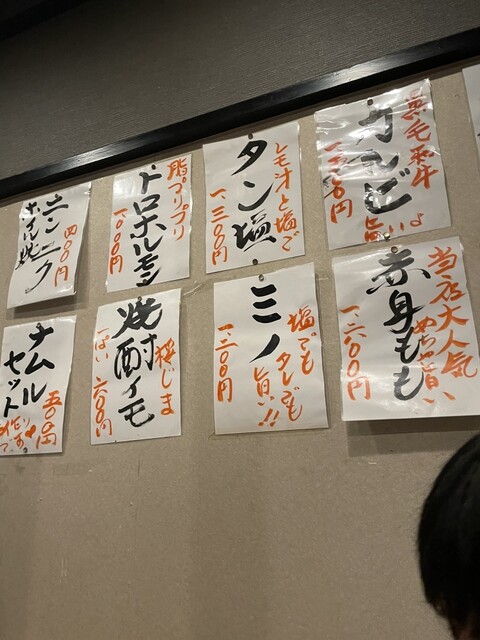 黒毛和牛
カルビ
旨いよ
レモ汁と塩で
タン塩
一、三〇〇円
脂プリプリ
トロホルモン
一、〇〇〇円
ニンニク
ホイル焼
四〇〇円
当店大人気
めちゃ旨い
赤身もも
一、二〇〇円
塩でも
タレでも
旨い!!
ミノ
一、二〇〇円
焼酎イモ
一ぱい 六〇〇円
ナムル
セット
五〇〇円